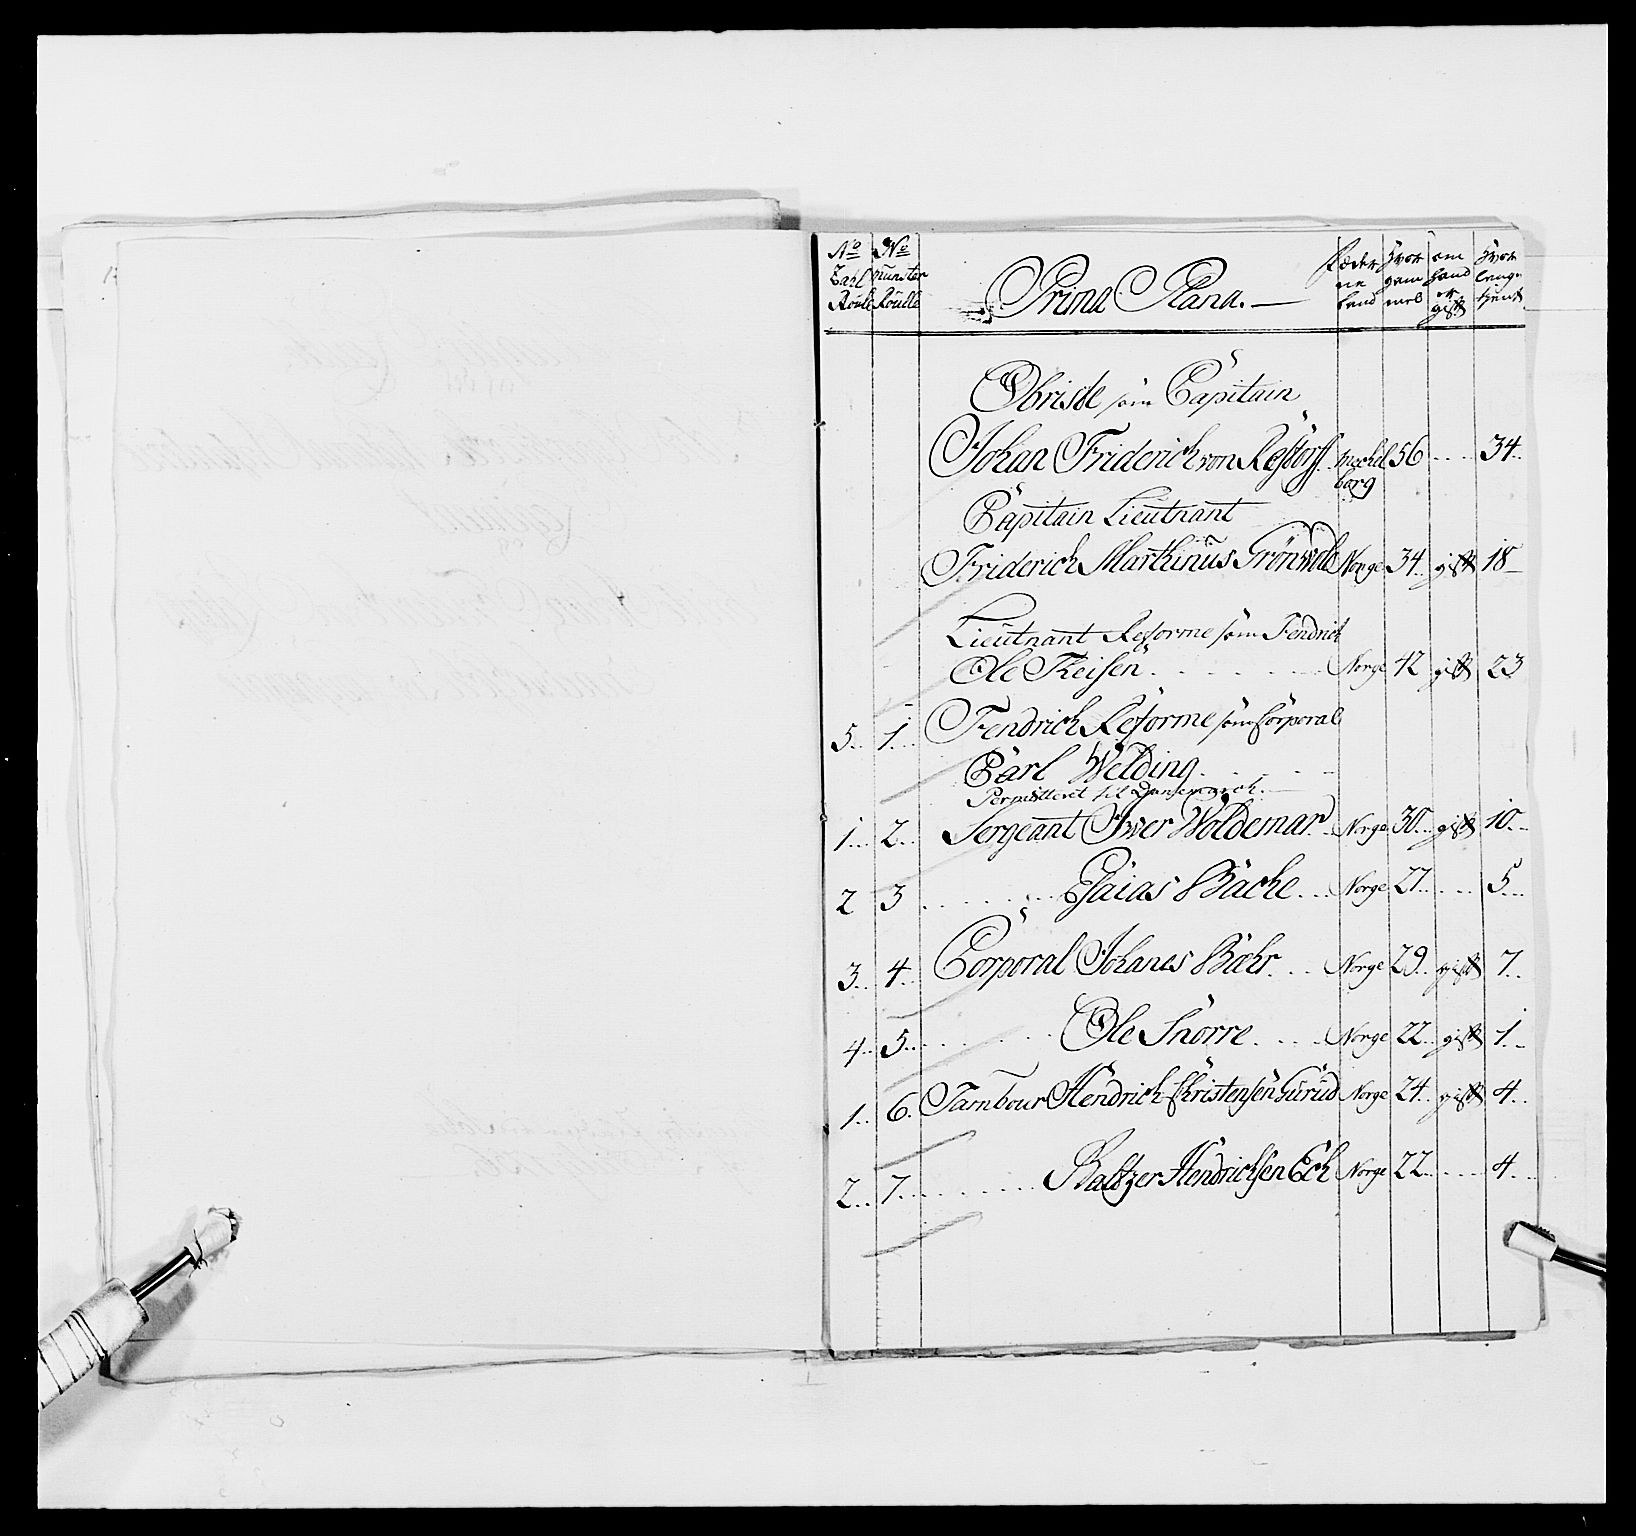 No No Prima Plana. Fæder Hvor om Hvor
Zahl Munster ne gam hand lenge
Roulle Roulle land mel er gift tient
Obriste som Capitain
Johan Friderich von Restorff Meckel 56 34
borg
Capitain Lieutnant
Friderich Marthinus Grönvold Norge 34 gift 18
Lieutnant Reforme som Fendrich
Ole Theisen Norge 42 gift 23
5 1 Fendrich Reforme som Corporal
Carl Welding
Permitteret til Dannemarck.
1 2 Sergeant Iver Woldemar Norge 30 gift 10
2 3 Esaias Bache Norge 27 5
3 4 Corporal Johanes Bæhr Norge 29 gift 7
4 5 Ole Snorre Norge 22 gift 1
1 6 Tambour Hendrich Christensen Gurud Norge 24 gift 4
2 7 Baltzer Hendrichsen Ech Norge 22 4